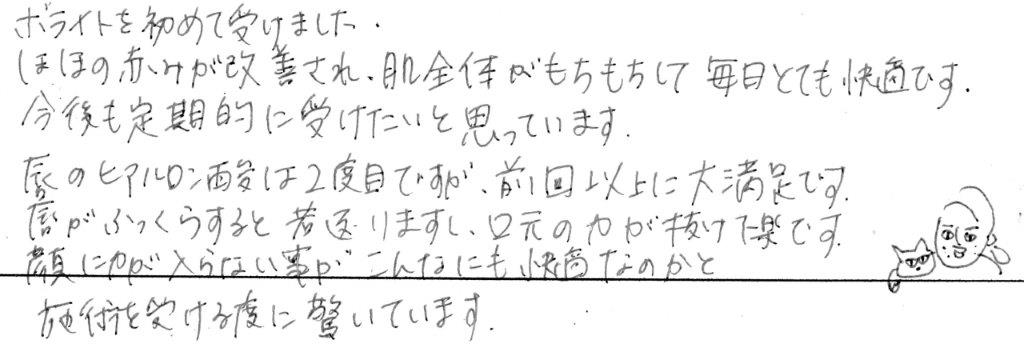 ボライトを初めて受けました.
ほほの赤みが改善され、肌全体がもちもちして毎日とても快適です.
今後も定期的に受けたいと思っています.
唇のヒアルロン酸は2度目ですが、前回以上に大満足です.
唇がふっくらすると若返りますし、口元の力が抜けて楽です.
顔に力が入らない事がこんなにも快適なのかと
施術を受ける度に驚いています.